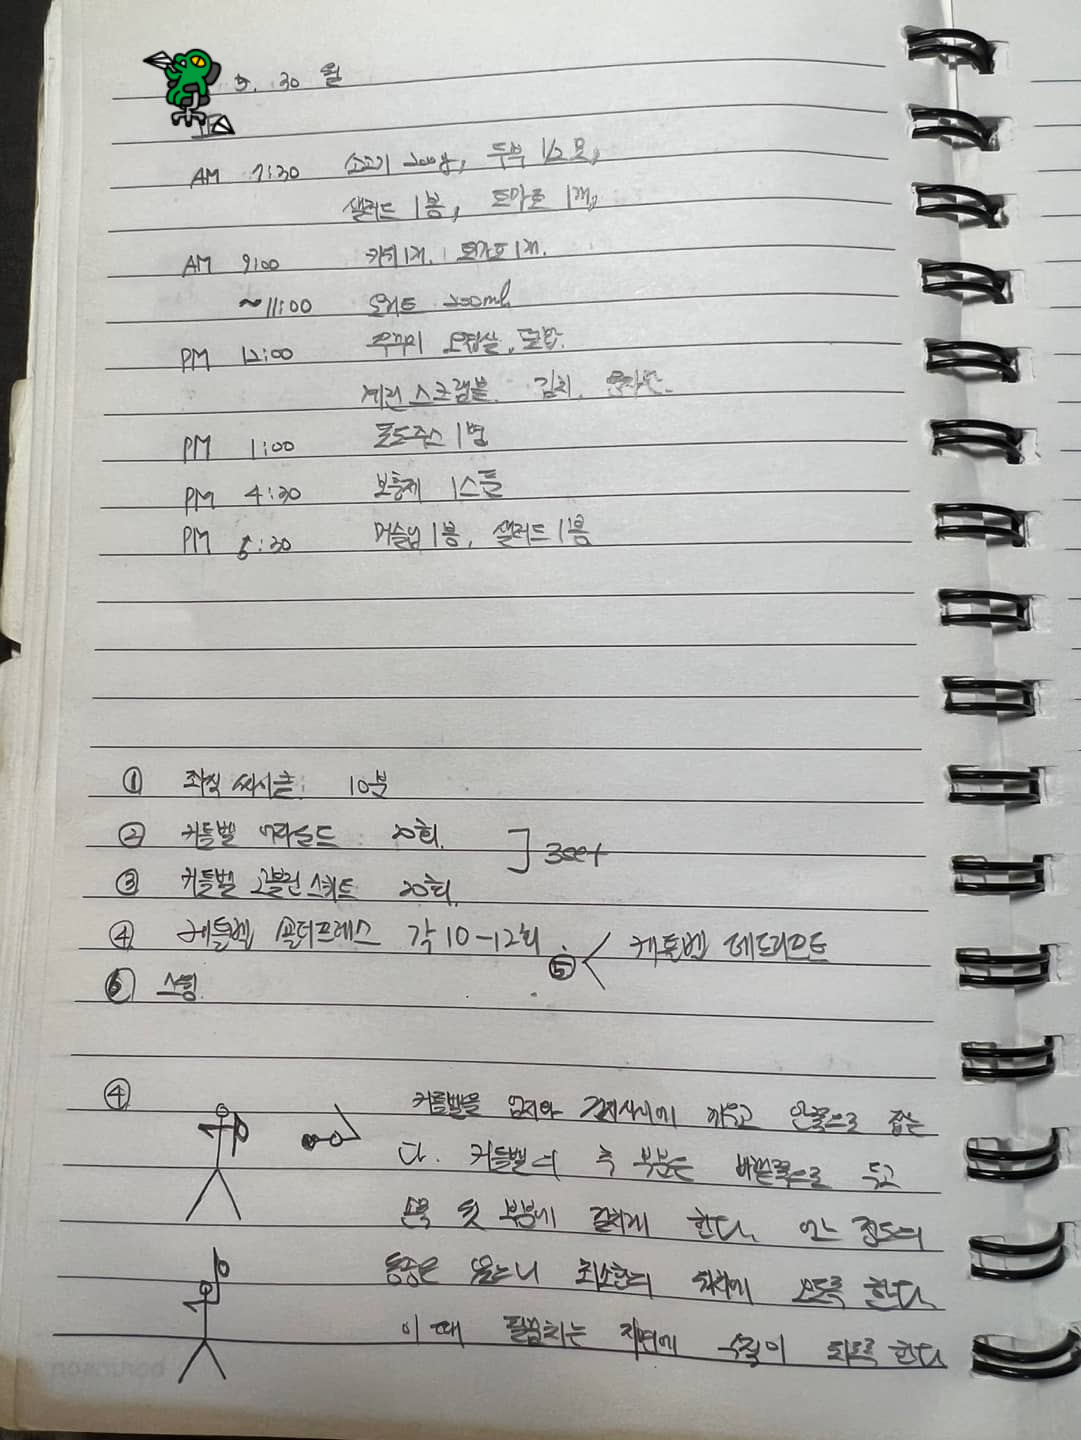 5. 30 월
AM 7:30 소고기 200g, 두부 1/2모,
샐러드 1봉, 토마토 1개,
AM 9:00 커피1개. 토마토1개.
~11:00 오트 250ml
PM 12:00 쭈꾸미 오징어, 쌀밥.
계란 스크램블. 김치.
PM 1:00 포도주스 1병
PM 4:30 보충제 1스푼
PM 6:30 머슬밀 1봉, 샐러드 1봉
① 좌식 싸이클: 10분
② 커틀벨 20회. ] 3set
③ 커틀벨 고블린 스쿼트 20회.
④ 케틀벨 숄더프레스 각 10-12회. ⑤ < 케틀벨 데드리프트
⑥ 스윙.
④ 커틀벨을 엄지와 검지사이에 끼우고 안쪽으로 잡는
다. 커틀벨의 추 부분은 바깥쪽으로 두고
손목 윗 부분에 걸치게 한다. 어느 정도의
통증은 있으니 최소한의 위치에 오도록 한다.
이 때 팔꿈치는 지면에 수직이 되도록 한다